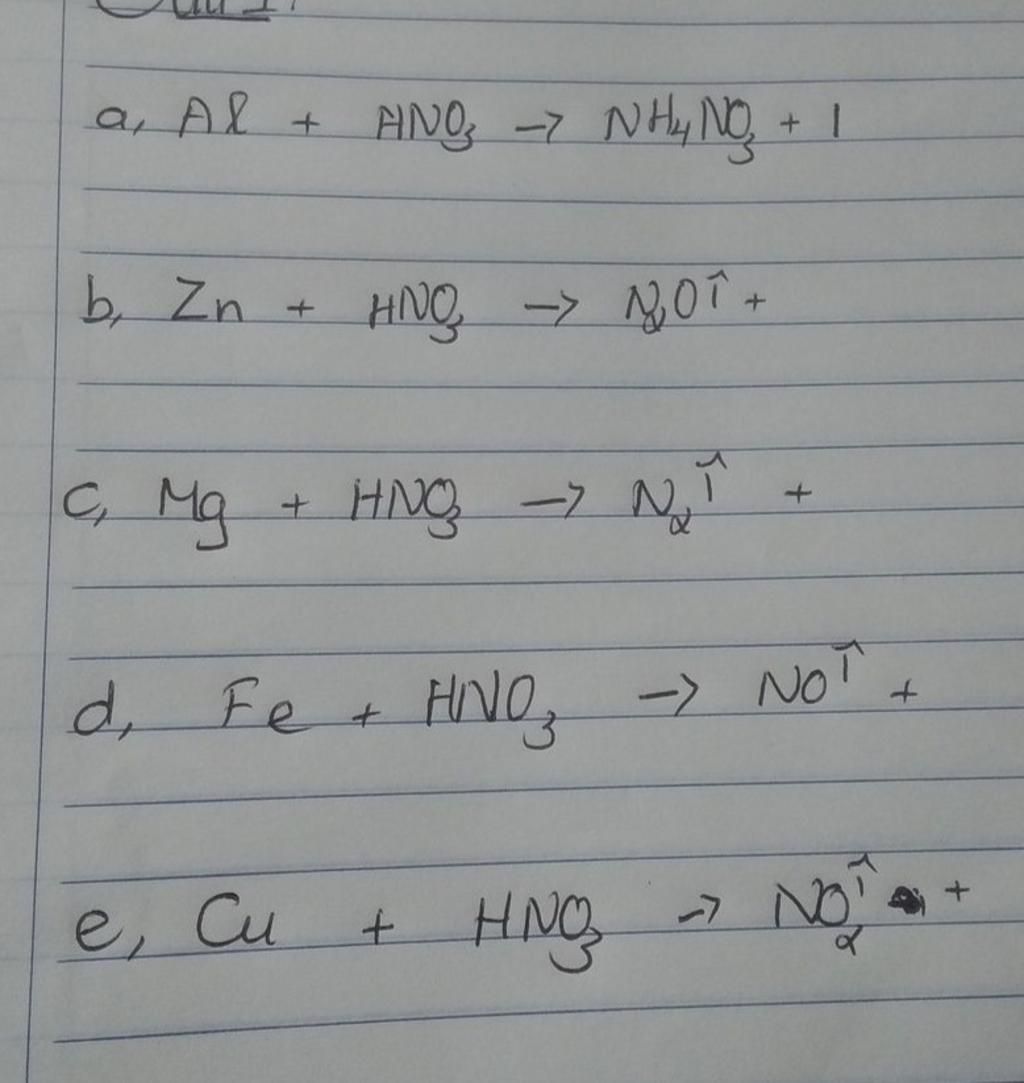 a, Al + HNO₃ → NH₄NO₃ + 1
b, Zn + HNO₃ → N₂O↑ +
c, Mg + HNO₃ → N₂↑ +
d, Fe + HNO₃ → NO↑ +
e, Cu + HNO₃ → NO₂↑ +